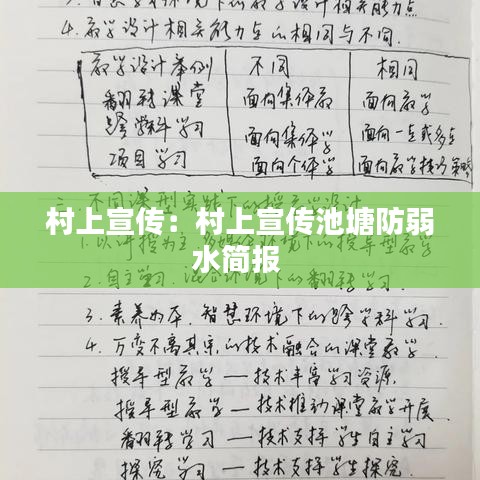 4. 教学设计相关能力点的相同与不同.
教学设计举例 不同 相同
翻转课堂 面向集体教 面向教学
跨学科学习 面向集体学 面向一点或多点
项目学习 面向个体学 面向教学技巧策略
村上宣传：村上宣传池塘防弱
水简报
2. 自主学习.混合环境下的翻转学习.
3. 素养为本.智慧环境下的跨学科学习.
4. 万变不离其宗的技术融合的课堂教学.
授导型教学 — 技术丰富学习资源.
授导型教学 — 技术推动课堂教学开展.
翻转学习 — 技术支持学生自主学习
探究学习 — 技术支持学生探究.